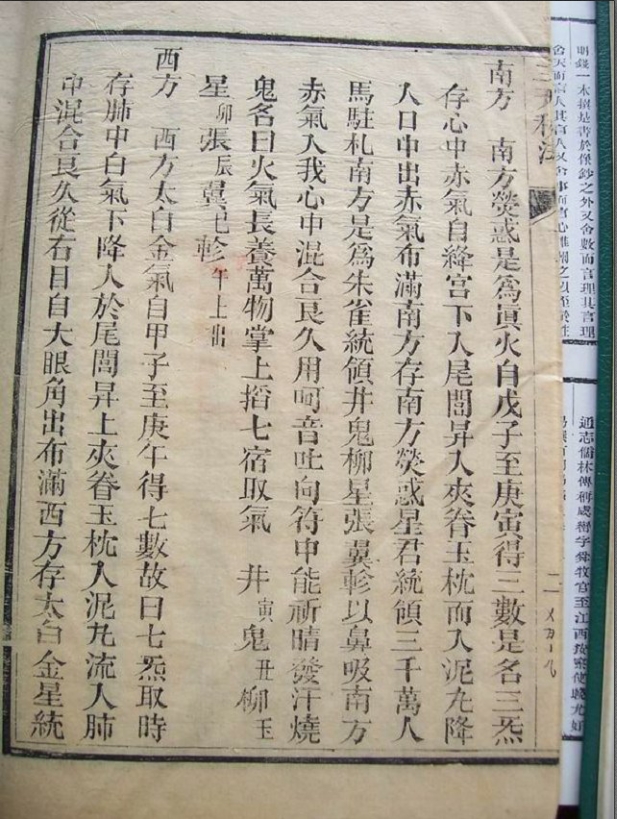 明錢一本撰是書於像鈔之外又舍數而言理其言理
南方　南方熒惑是爲眞火自戊子至庚寅得三數是名三炁
存心中赤氣自絳宮下入尾閭昇入夾脊玉枕而入泥九降
人口中出赤氣布滿南方存南方熒惑星君統領三千萬人
馬駐札南方是爲朱雀統領井鬼柳星張翼軫以鼻吸南方
赤氣入我心中混合良久用呵音吐向符中能祈晴發汗燒
鬼名曰火氣長養萬物掌上搯七宿取氣　井寅鬼丑柳玉
星卯張辰翼巳軫午上出
西方　西方太白金氣自甲子至庚午得七數故曰七炁取時
存肺中白氣下降入於尾閭昇上夾脊玉枕入泥九流入肺
中混合良久從右目自大眼角出布滿西方存太白金星統